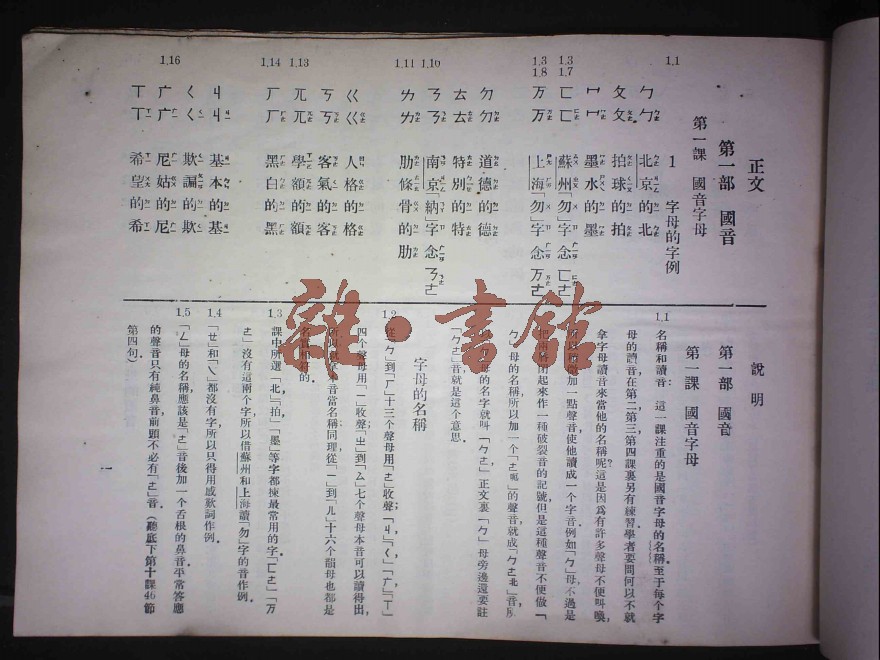 正文
第一部 國音
第一課 國音字母
1.1
1 字母的字例
ㄅ ㄅㄜ 北京的北
ㄆ ㄆㄜ 拍球的拍
ㄇ ㄇㄜ 墨水的墨
1.3
1.7
ㄈ ㄈㄜ 蘇州「勿」字念ㄈㄜ
1.3
1.8
万 万ㄜ 上海「勿」字念万ㄜ
ㄉ ㄉㄜ 道德的德
ㄊ ㄊㄜ 特別的特
1.10
ㄋ ㄋㄜ 南京「納」字念ㄋㄜ
1.11
ㄌ ㄌㄜ 肋條骨的肋
ㄍ ㄍㄜ 人格的格
ㄎ ㄎㄜ 客氣的客
1.13
兀 兀ㄜ 學額的額
1.14
ㄏ ㄏㄜ 黑白的黑
ㄐ ㄐㄧ 基本的基
ㄑ ㄑㄧ 欺騙的欺
1.16
广 广ㄧ 尼姑的尼
ㄒ ㄒㄧ 希望的希
說明
第一部 國音
第一課 國音字母
1.1 名稱和讀音: 這一課注重的是國音字母的名稱,至于每个字
母的讀音,在第二第三第四課裏另有練習.學者要問何以不就
拿字母讀音來當他的名稱呢?這是因爲有許多聲母不便叫喚,
所以稍微加一點聲音,使他讀成一个字音.例如「ㄅ」母,不過是
起來作一種破裂音的記號,但是這種聲音不便做「
ㄅ」母的名稱,所以加一个「ㄜ」的聲音,就成「ㄅㄜ北」音,
母的名字就叫「ㄅㄜ」,正文裏「ㄅ」母旁邊還要註
「ㄅㄜ」音就是這个意思.
字母的名稱
1.2 從「ㄅ」到「ㄏ」十三个聲母用「ㄜ」收聲;「ㄐ」,「ㄑ」,「广」,「ㄒ」
四个聲母用「ㄧ」收聲;「ㄓ」到「ㄙ」七个聲母本音可以讀得出,
本音當名稱;同理從「ㄧ」到「ㄦ」十六个韻母也都是
名實相符的.
1.3 課中所選「北」,「拍」,「墨」等字都揀最常用的字.「ㄈㄜ」「万
ㄜ」沒有這兩个字,所以借蘇州和上海讀「勿」字的音作例.
1.4 「ㄝ」和「ㄟ」都沒有字,所以只得用感歎詞作例.
1.5 「ㄥ」母的名稱,應該是「ㄜ」音後加一个舌根的鼻音,平常答應
的聲音只有純鼻音,前頭不必有「ㄜ」音.(聽底下第十課46節
第四句).
一
雜·書館